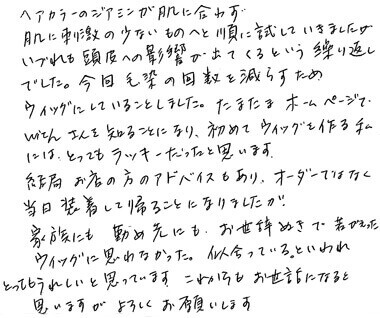 ヘアカラーのジアミンが肌に合わず
肌に刺激の少ないものへと順に試していきましたが
いづれも頭皮への影響が出てくるという繰り返し
でした。今回毛染の回数を減らすため
ウィッグにしていることしました。たまたま ホームページで
withさんを知ることになり、初めてウィッグを作る私
には、とってもラッキーだったと思います。
結局 お店の方のアドバイスもあり、オーダーではなく
当日装着して帰ることになりましたが
家族にも 勤め先にも、お世辞ぬきで
ウィッグに思われなかった。似合っている。といわれ
とってもうれしいと思っています これからも お世話になると
思いますが よろしく お願いします